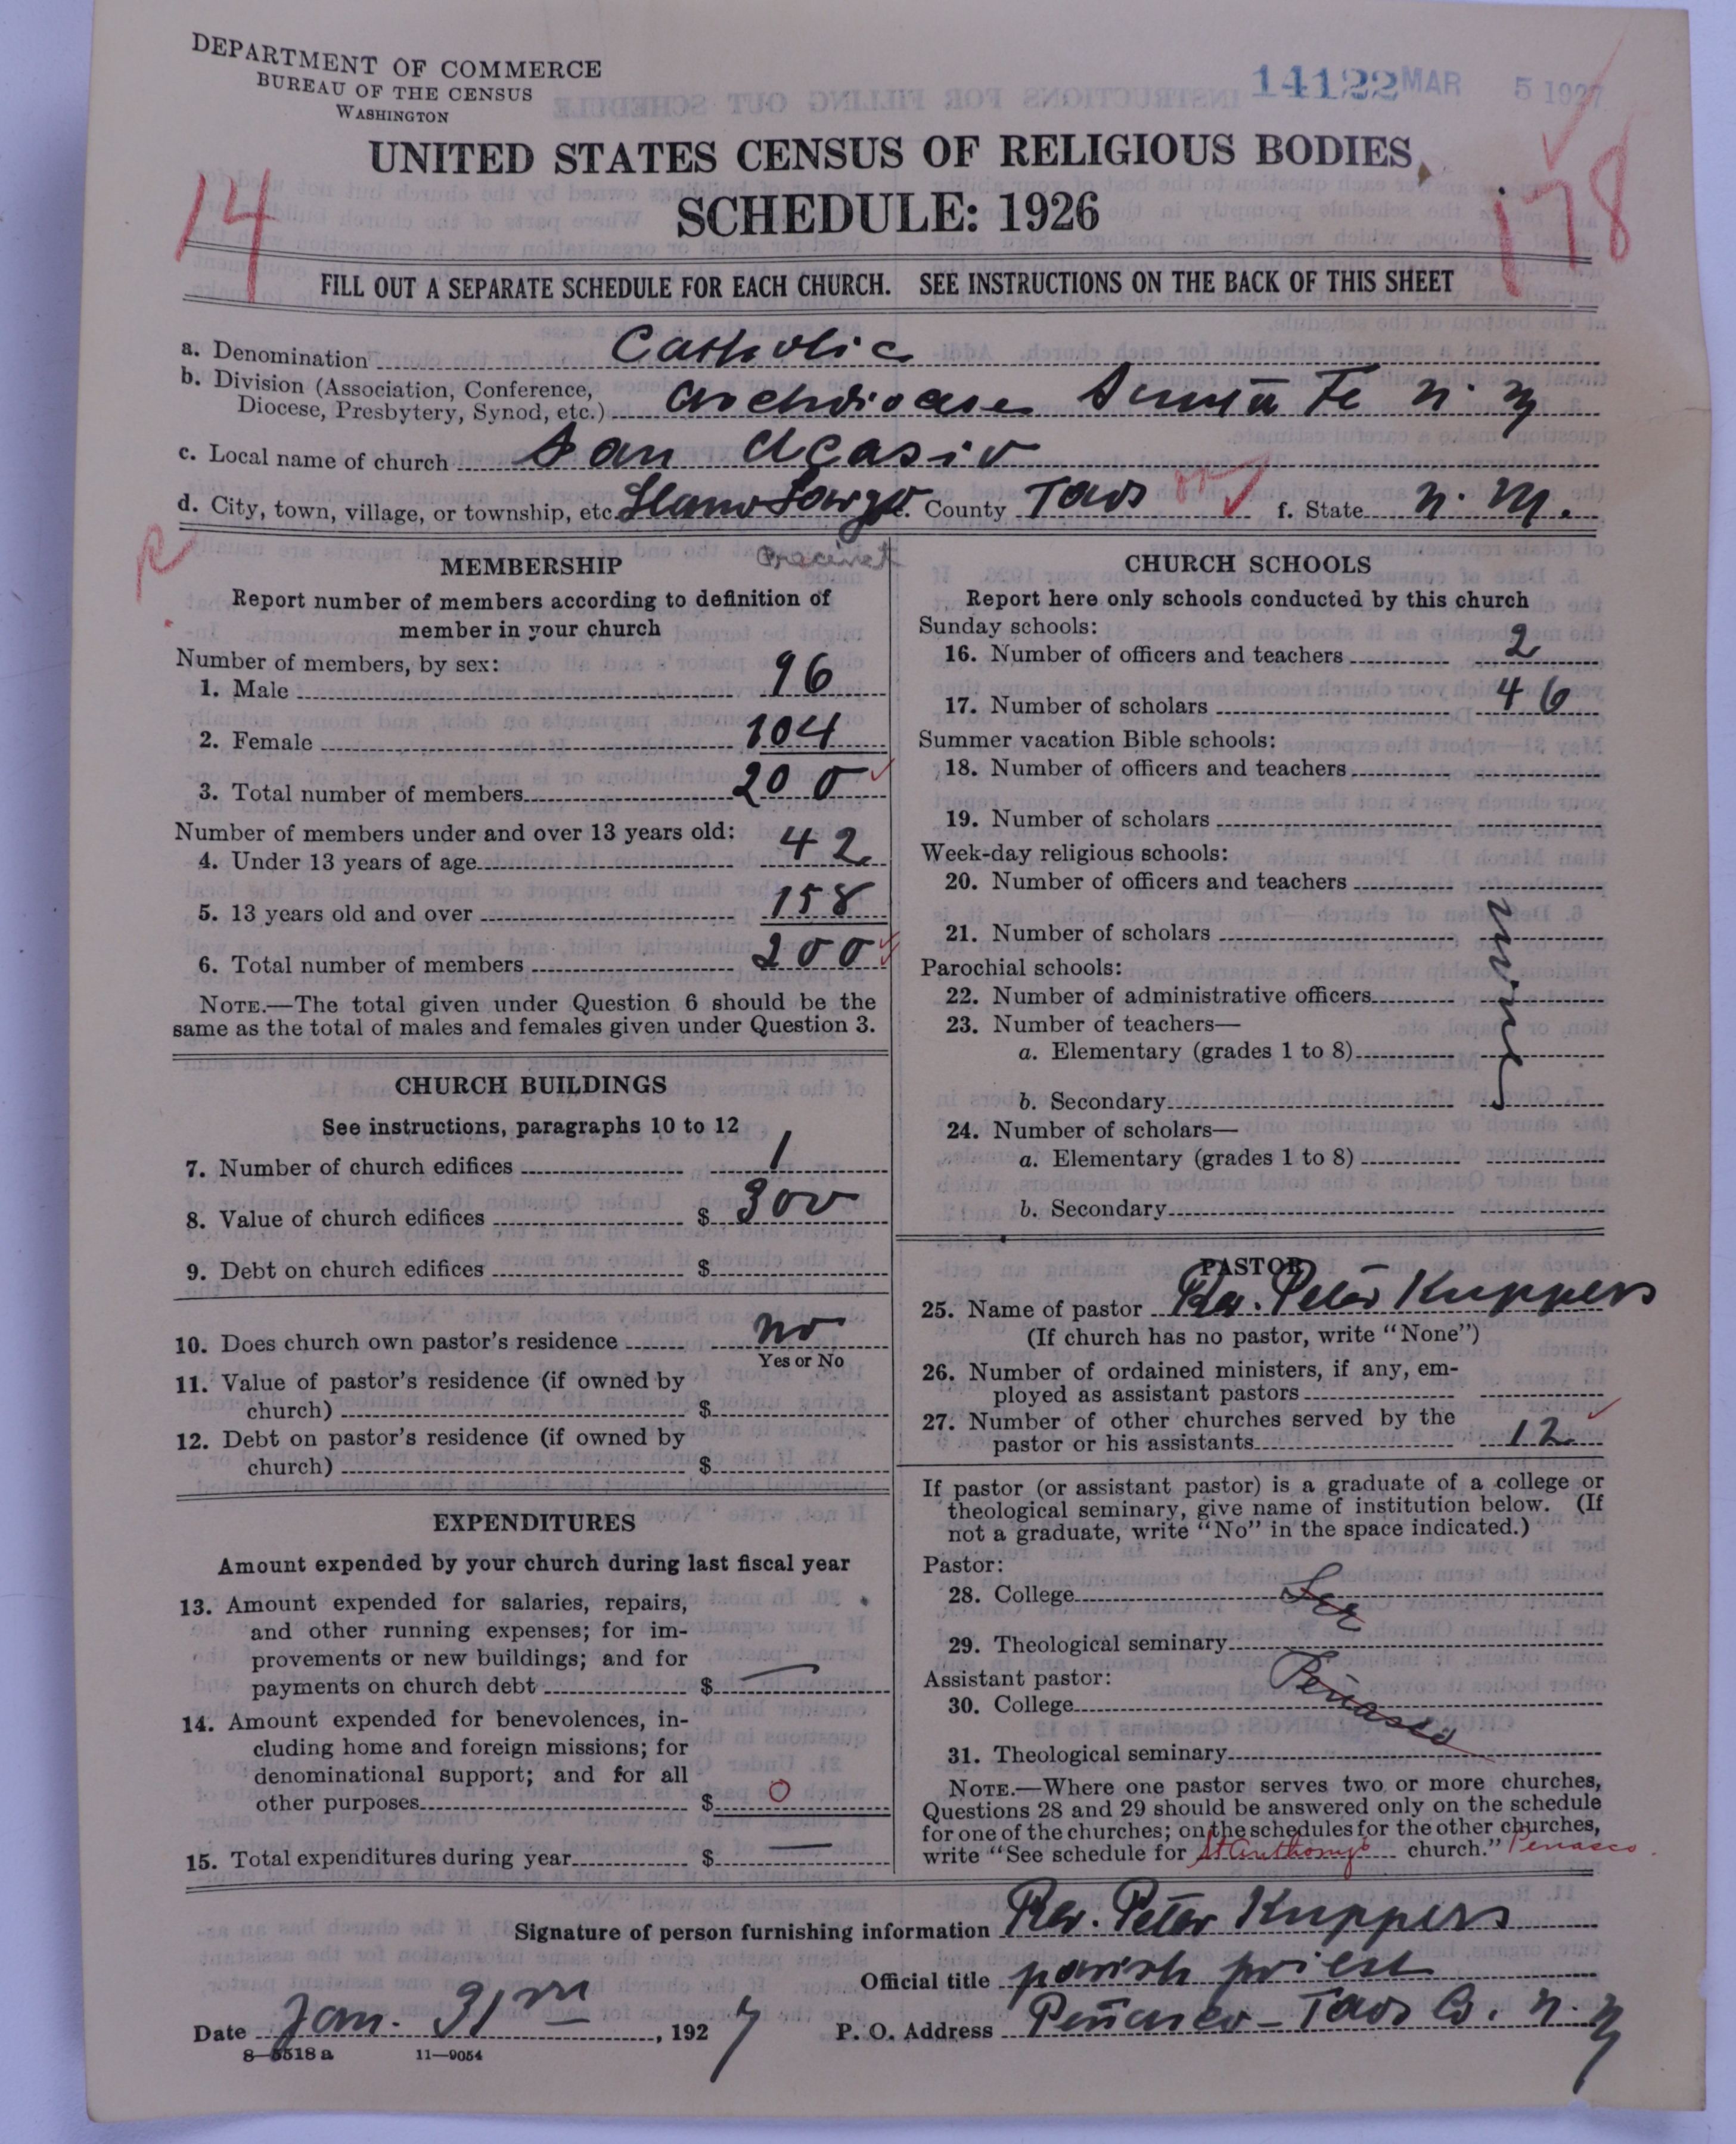 DEPARTMENT OF COMMERCE
BUREAU OF THE CENSUS
WASHINGTON
14122 MAR 5 1927
UNITED STATES CENSUS OF RELIGIOUS BODIES
SCHEDULE: 1926
14
178
FILL OUT A SEPARATE SCHEDULE FOR EACH CHURCH. SEE INSTRUCTIONS ON THE BACK OF THIS SHEET
a. Denomination Catholic
b. Division (Association, Conference,
Diocese, Presbytery, Synod, etc.) Archdiocese Santa Fe N. M
c. Local name of church San Acasio
d. City, town, village, or township, etc. Llano Largo e. County Taos f. State N. M.
Precinct
MEMBERSHIP
Report number of members according to definition of
member in your church
Number of members, by sex:
1. Male 96
2. Female 104
3. Total number of members 200
Number of members under and over 13 years old:
4. Under 13 years of age 42
5. 13 years old and over 158
6. Total number of members 200
NOTE.—The total given under Question 6 should be the
same as the total of males and females given under Question 3.
CHURCH BUILDINGS
See instructions, paragraphs 10 to 12
7. Number of church edifices 1
8. Value of church edifices $ 300
9. Debt on church edifices $
10. Does church own pastor's residence no
Yes or No
11. Value of pastor's residence (if owned by
church) $
12. Debt on pastor's residence (if owned by
church) $
EXPENDITURES
Amount expended by your church during last fiscal year
13. Amount expended for salaries, repairs,
and other running expenses; for im-
provements or new buildings; and for
payments on church debt $ —
14. Amount expended for benevolences, in-
cluding home and foreign missions; for
denominational support; and for all
other purposes $ 0
15. Total expenditures during year $ —
CHURCH SCHOOLS
Report here only schools conducted by this church
Sunday schools:
16. Number of officers and teachers 2
17. Number of scholars 46
Summer vacation Bible schools:
18. Number of officers and teachers
19. Number of scholars
Week-day religious schools:
20. Number of officers and teachers
21. Number of scholars
Parochial schools:
22. Number of administrative officers
23. Number of teachers—
a. Elementary (grades 1 to 8)
b. Secondary
24. Number of scholars—
a. Elementary (grades 1 to 8)
b. Secondary
PASTOR
25. Name of pastor Rev. Peter Kuppers
(If church has no pastor, write "None")
26. Number of ordained ministers, if any, em-
ployed as assistant pastors
27. Number of other churches served by the
pastor or his assistants 12
If pastor (or assistant pastor) is a graduate of a college or
theological seminary, give name of institution below. (If
not a graduate, write "No" in the space indicated.)
Pastor:
28. College See
29. Theological seminary
Assistant pastor: Penasco
30. College
31. Theological seminary
NOTE.—Where one pastor serves two or more churches,
Questions 28 and 29 should be answered only on the schedule
for one of the churches; on the schedules for the other churches,
write "See schedule for St Anthony's church." Penasco
Signature of person furnishing information Rev. Peter Kuppers
Official title parish priest
Date Jan. 31, 1927 P. O. Address Peñasco - Taos Co. N. M
8—5518 a 11—9054